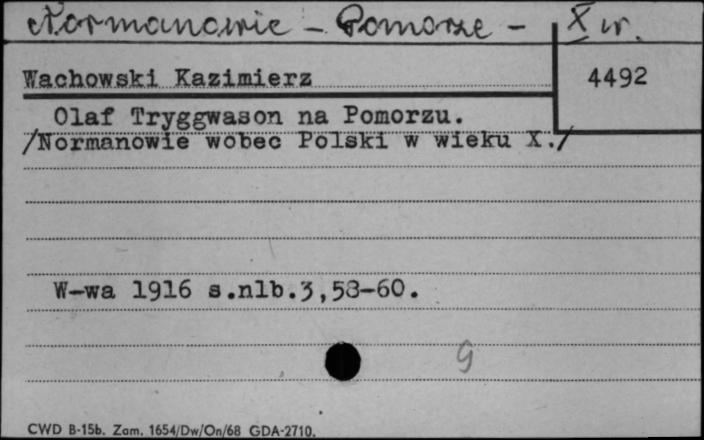 Normanowie – Pomorze – X w.
Wachowski Kazimierz
4492
Olaf Tryggwason na Pomorzu.
/Normanowie wobec Polski w wieku X./
W-wa 1916 s.nlb.3,58-60.
9
CWD B-15b. Zam. 1654/Dw/On/68 GDA-2710.